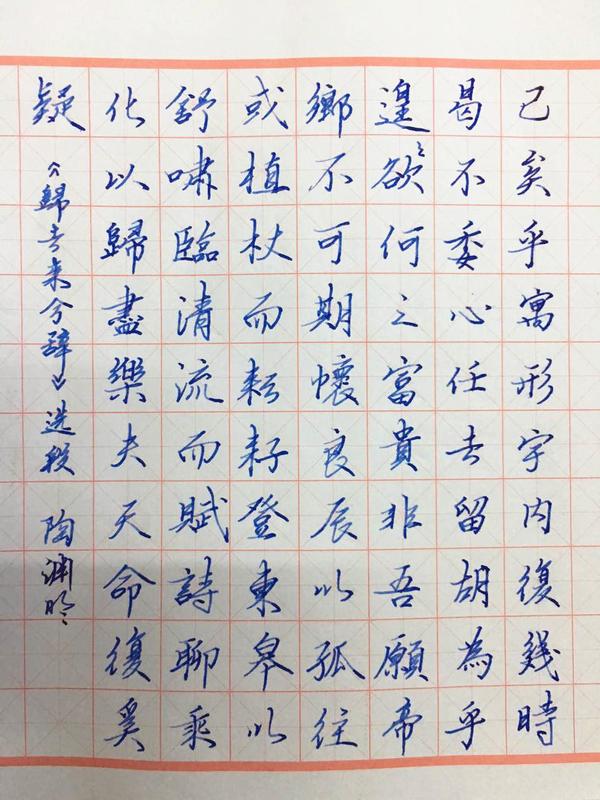 已矣乎寓形宇内復幾時
曷不委心任去留胡為乎
遑〻欲何之富貴非吾願帝
鄉不可期懷良辰以孤往
或植杖而耘耔登東皋以
舒嘯臨清流而賦詩聊乘
化以歸盡樂夫天命復奚
疑《歸去来兮辞》选段 陶渊明